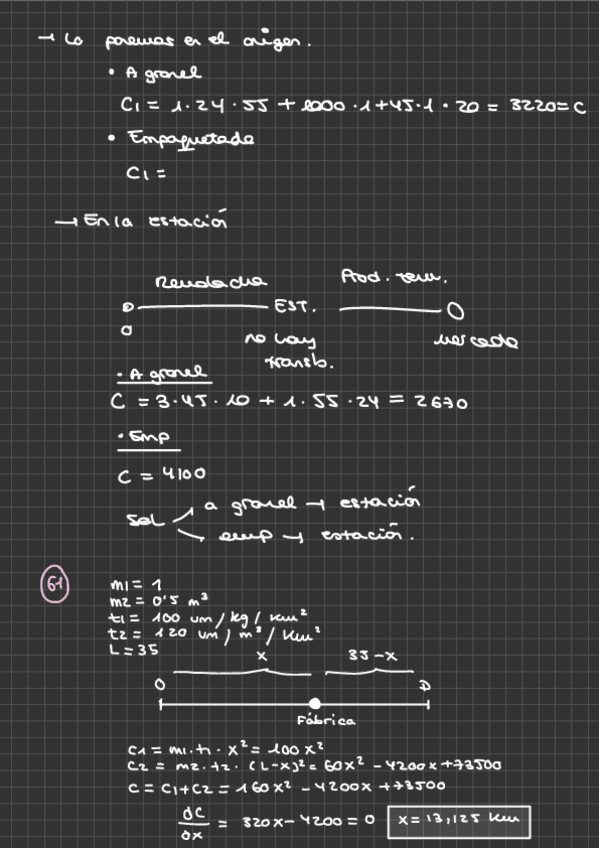 → Lo ponemos en el origen.
• A granel
C1 = 1·24·55 + 1000·1+45·1·20 = 3220=C
• Empaquetada
C1 =
→ En la estación
Remolacha Prod. term.
O EST. O
O no hay mercado
transb.
• A granel
C = 3·45·10 + 1·55·24 = 2670
• Emp
C = 4100
Sol a granel → estación
emp → estación.
61 m1 = 1
m2 = 0'5 m³
t1 = 100 um/kg/km²
t2 = 120 um/m³/km²
L=35
x 35-x
O D
Fábrica
C1 = m1·t1·x² = 100x²
C2 = m2·t2·(L-x)² = 60x² - 4200x+73500
C = C1+C2 = 160x² - 4200x +73500
dC/dx = 320x - 4200 = 0 x = 13,125 km